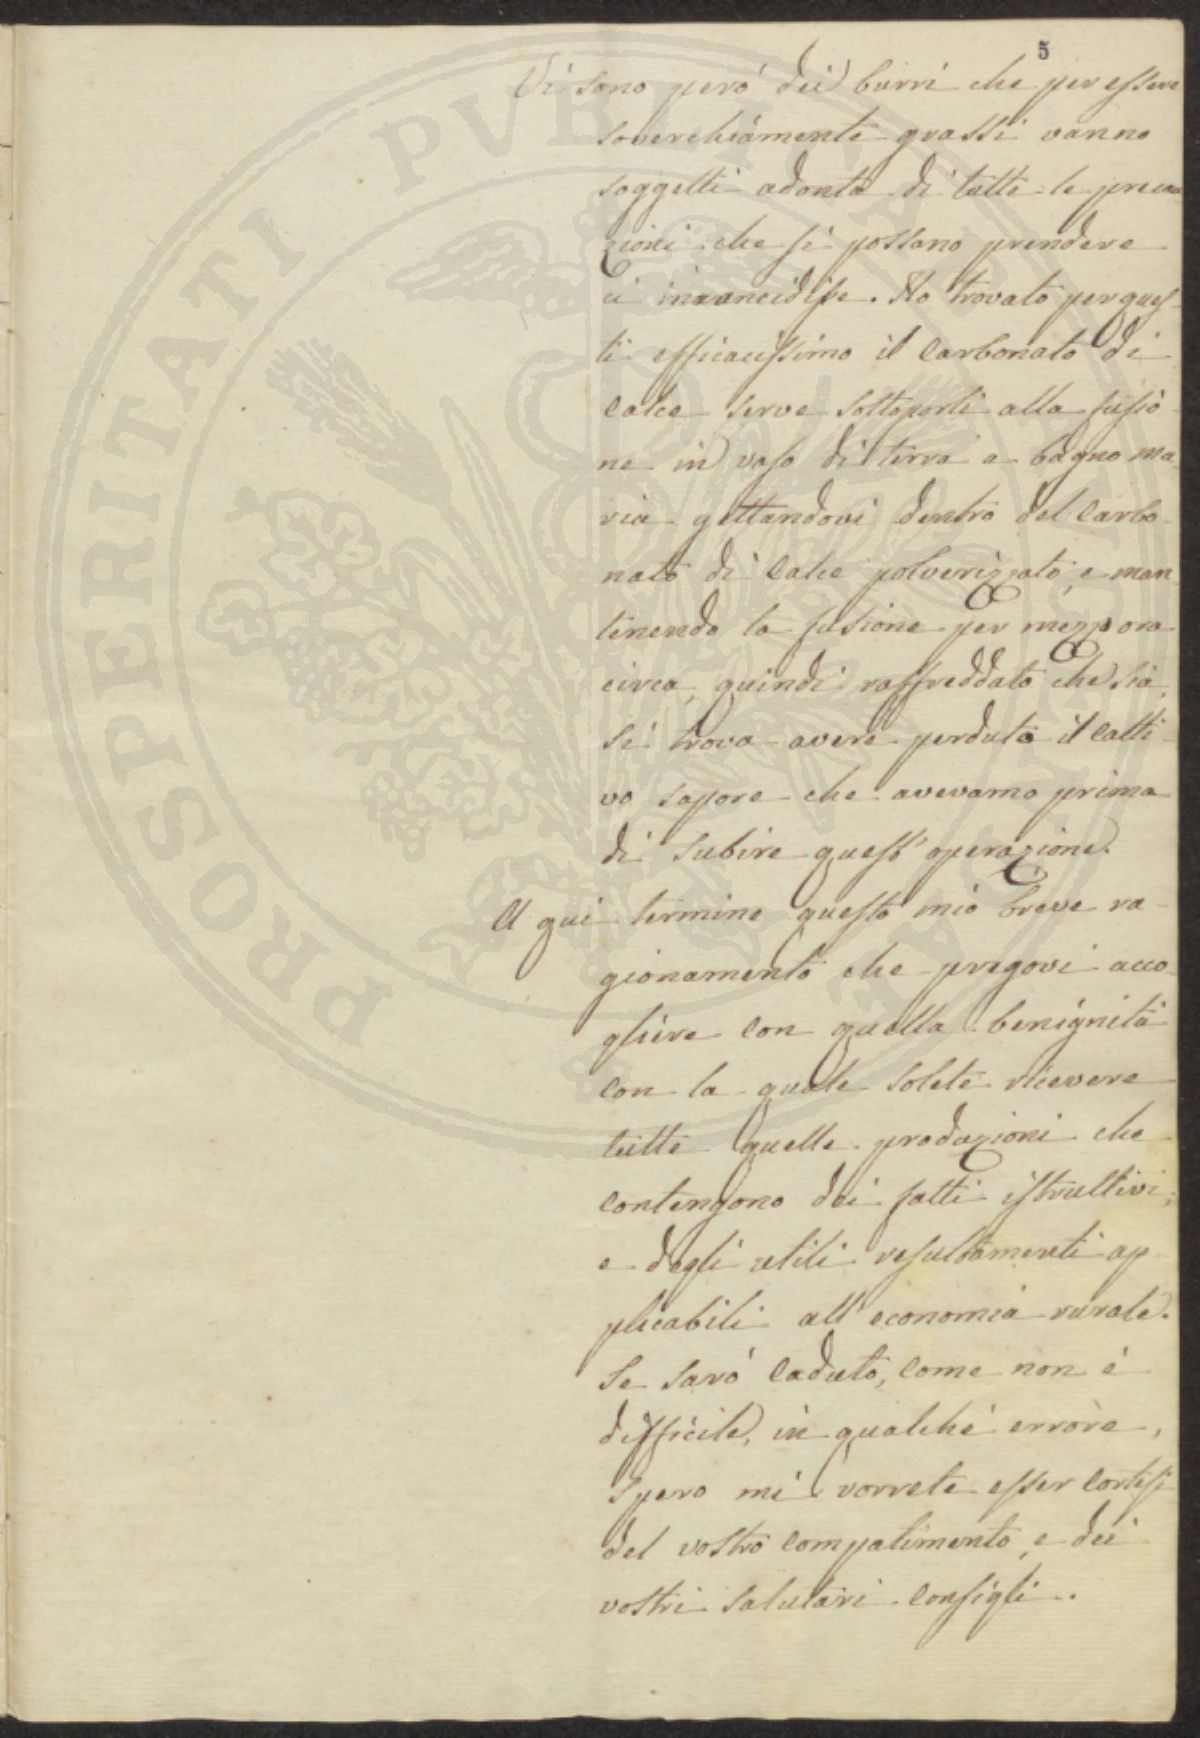 5
Vi sono però dei burri che per essere
soverchiamente grassi vanno
soggetti adonta di tutte le precau
zioni che si possano prendere
a inrancidire. Ho trovato per ques
ti efficacissimo il Carbonato di
Calce serve sottoporli alla fusio
ne in vaso di terra a bagno ma
ria gettandovi dentro del Carbo
nato di Calce polverizzato, e man
tinendo la fusione per mezz ora
circa, quindi raffreddato che sia,
si trova avere perduto il Catti
vo sapore che avevamo prima
di subire quest' operazione.
A qui termine questo mio breve ra
gionamento che pregovi acco
gliere con quella benignità
con la quale solete ricevere
tutte quelle produzioni che
contengono dei fatti istruttivi,
e degli utili resultamenti ap
plicabili all' economia rurale.
Se sarò Caduto, Come non è
difficile, in qualche errore,
spero mi vorrete esser Cortesi
del vostro Compatimento, e dei
vostri salutari Consigli.
PROSPERITATI PVBLICAE AVGENDAE